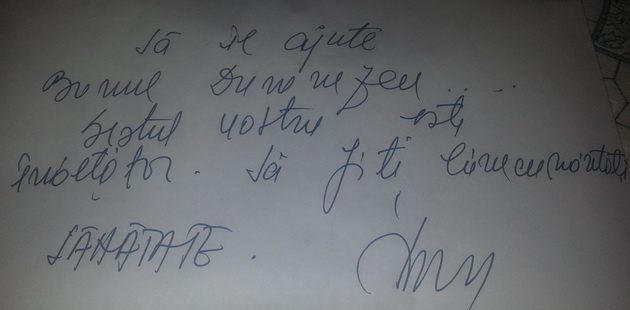 Să te ajute
Bunul Dumnezeu....
Gestul vostru este
înălțător. Să fiți binecuvântați
SĂNĂTATE.